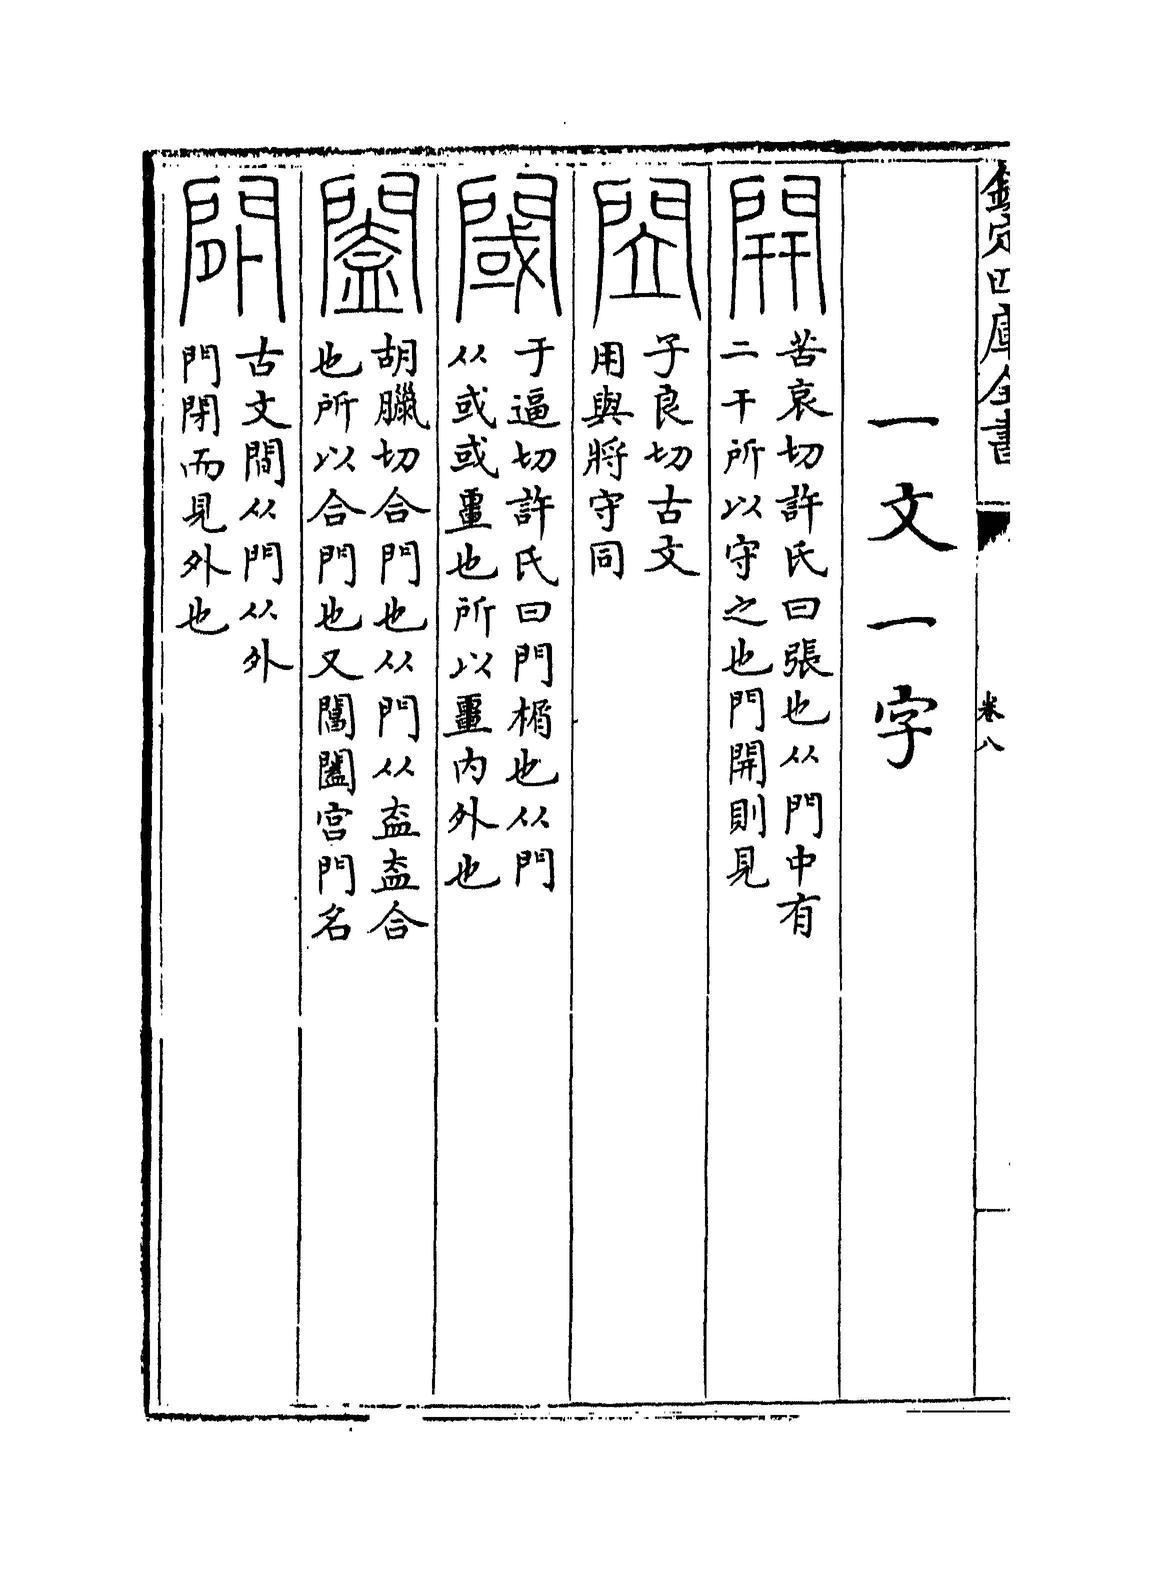 欽定四庫全書
卷八
一文一字
開
苦哀切許氏曰張也从門中有
二干所以守之也門開則見
子良切古文
用與將守同
閾
于逼切許氏曰門榍也从門
从或或畺也所以畺内外也
闔
胡臘切合門也从門从盇盇合
也所以合門也又閶闔宮門名
𨳢
古文閒从門从外
門閉而見外也